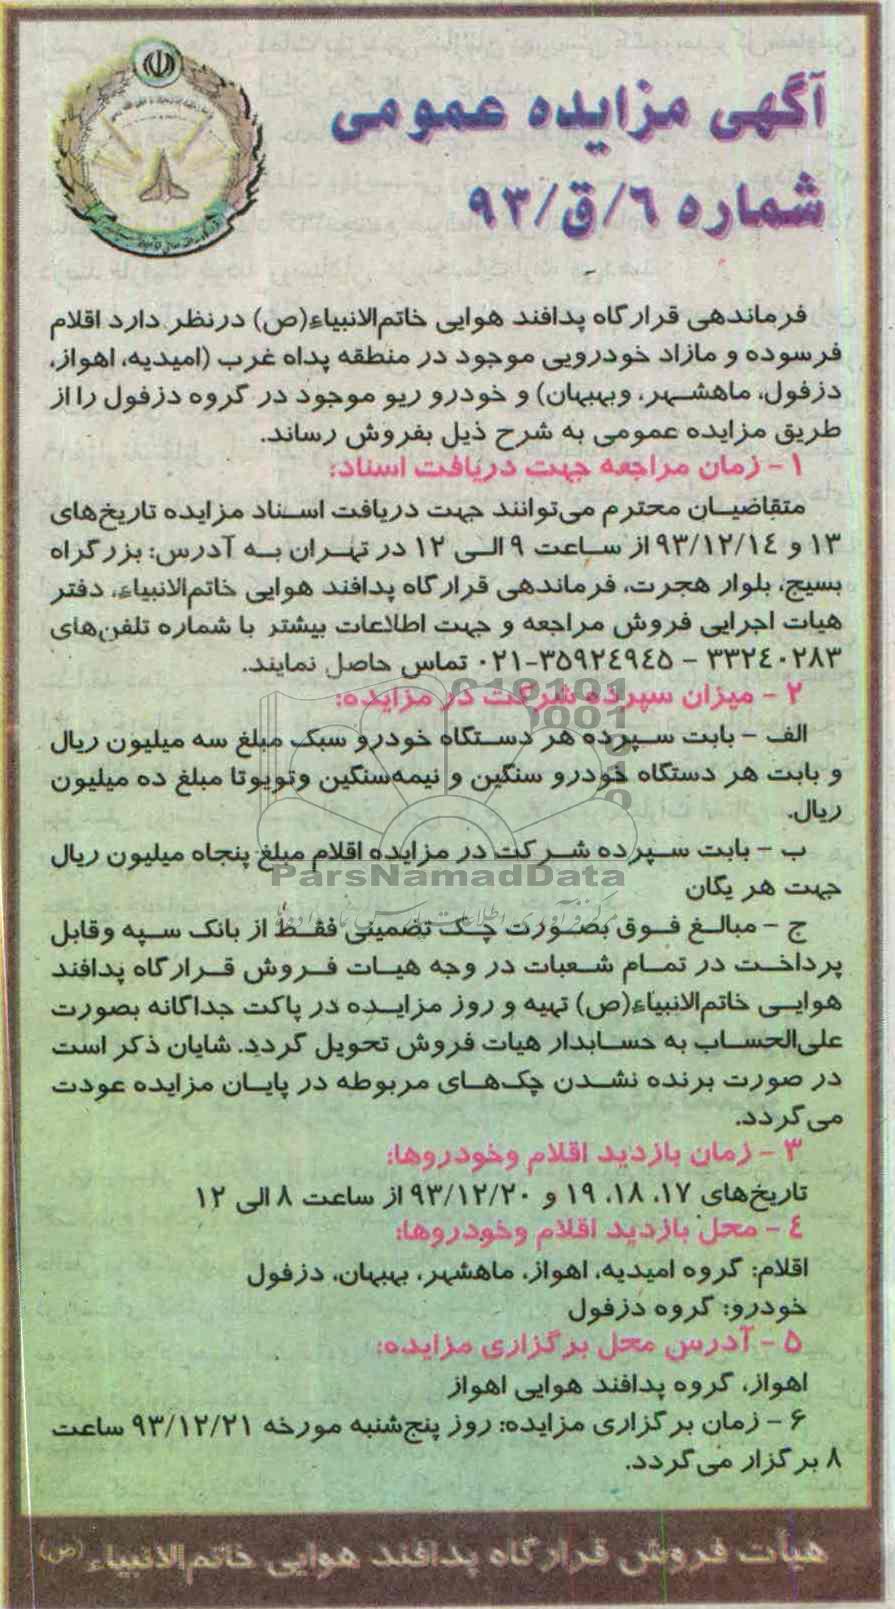 آگهی مزایده عمومی
شماره ۶/ق/۹۳
فرماندهی قرارگاه پدافند هوایی خاتم‌الانبیاء(ص) درنظر دارد اقلام
فرسوده و مازاد خودرویی موجود در منطقه پداه غرب (امیدیه، اهواز،
دزفول، ماهشهر، وبهبهان) و خودرو ریو موجود در گروه دزفول را از
طریق مزایده عمومی به شرح ذیل بفروش رساند.
۱ - زمان مراجعه جهت دریافت اسناد:
متقاضیان محترم می‌توانند جهت دریافت اسناد مزایده تاریخ‌های
۱۳ و ۹۳/۱۲/۱۴ از ساعت ۹ الی ۱۲ در تهران به آدرس: بزرگراه
بسیج، بلوار هجرت، فرماندهی قرارگاه پدافند هوایی خاتم‌الانبیاء، دفتر
هیات اجرایی فروش مراجعه و جهت اطلاعات بیشتر با شماره تلفن‌های
۳۳۲۴۰۲۸۳ - ۰۲۱-۳۵۹۲۴۹۴۵ تماس حاصل نمایند.
۲ - میزان سپرده شرکت در مزایده:
الف - بابت سپرده هر دستگاه خودرو سبک مبلغ سه میلیون ریال
و بابت هر دستگاه خودرو سنگین و نیمه‌سنگین وتویوتا مبلغ ده میلیون
ریال.
ب - بابت سپرده شرکت در مزایده اقلام مبلغ پنجاه میلیون ریال
جهت هر یگان
ParsNamadData
ج - مبالغ فوق بصورت چک تضمینی فقط از بانک سپه وقابل
پرداخت در تمام شعبات در وجه هیات فروش قرارگاه پدافند
هوایی خاتم‌الانبیاء(ص) تهیه و روز مزایده در پاکت جداگانه بصورت
علی‌الحساب به حسابدار هیات فروش تحویل گردد. شایان ذکر است
در صورت برنده نشدن چک‌های مربوطه در پایان مزایده عودت
می‌گردد.
۳ - زمان بازدید اقلام وخودروها:
تاریخ‌های ۱۷، ۱۸، ۱۹ و ۹۳/۱۲/۲۰ از ساعت ۸ الی ۱۲
۴ - محل بازدید اقلام وخودروها:
اقلام: گروه امیدیه، اهواز، ماهشهر، بهبهان، دزفول
خودرو: گروه دزفول
۵ - آدرس محل برگزاری مزایده:
اهواز، گروه پدافند هوایی اهواز
۶ - زمان برگزاری مزایده: روز پنج‌شنبه مورخه ۹۳/۱۲/۲۱ ساعت
۸ برگزار می‌گردد.
هیأت فروش قرارگاه پدافند هوایی خاتم‌الانبیاء (ص)